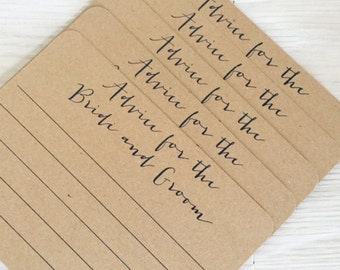 Advice for the
Advice for the
Advice for the
Advice for the
Advice for the
Bride and Groom